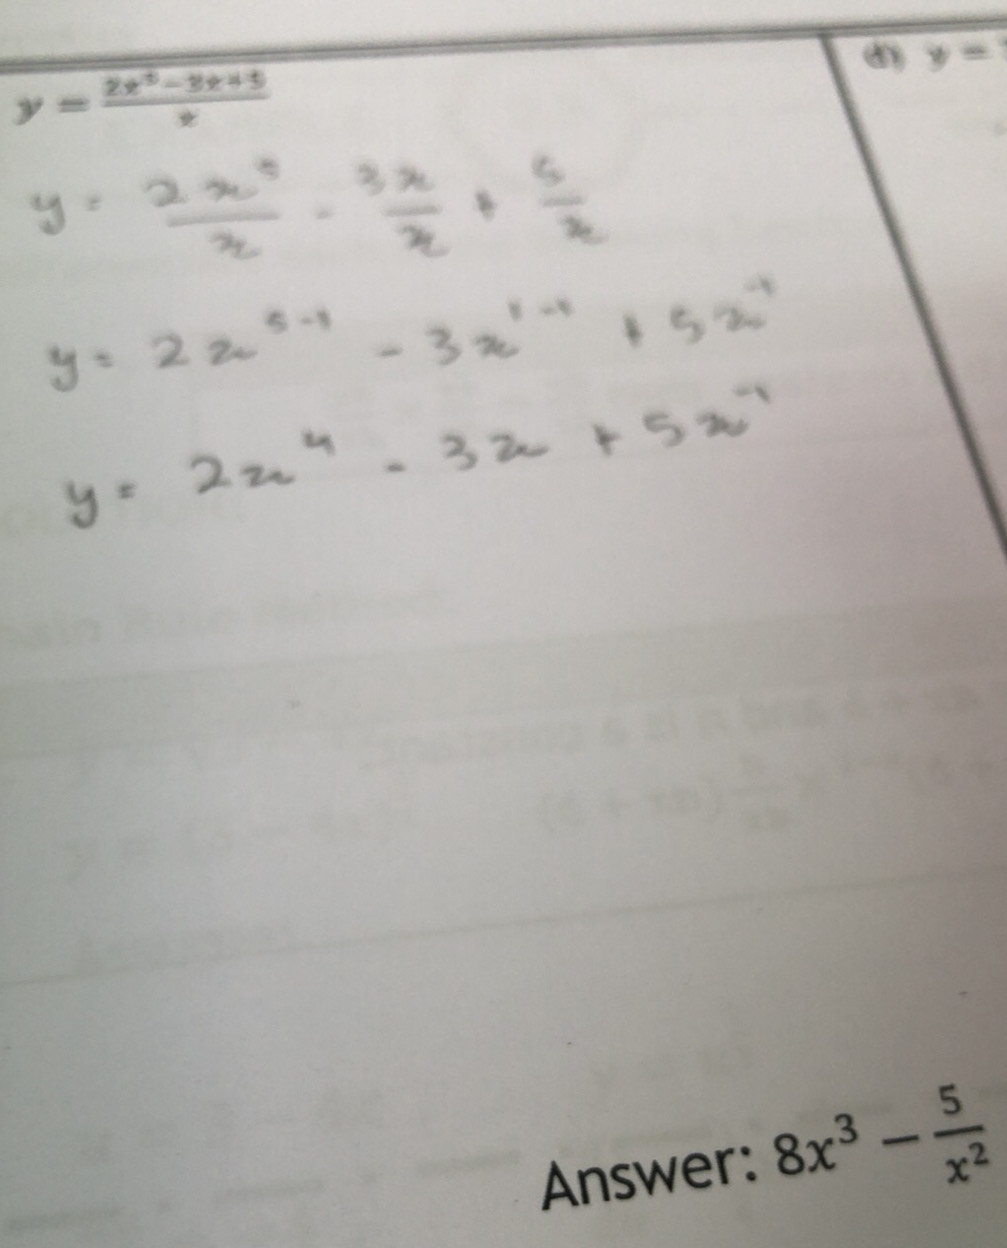 y = \frac{2x^5-3x+5}{x}
d) y =
y = \frac{2x^5}{x} - \frac{3x}{x} + \frac{5}{x}
y = 2x^{5-1} - 3x^{1-1} + 5x^{-1}
y = 2x^4 - 3x + 5x^{-1}
Answer: 8x^3 - \frac{5}{x^2}